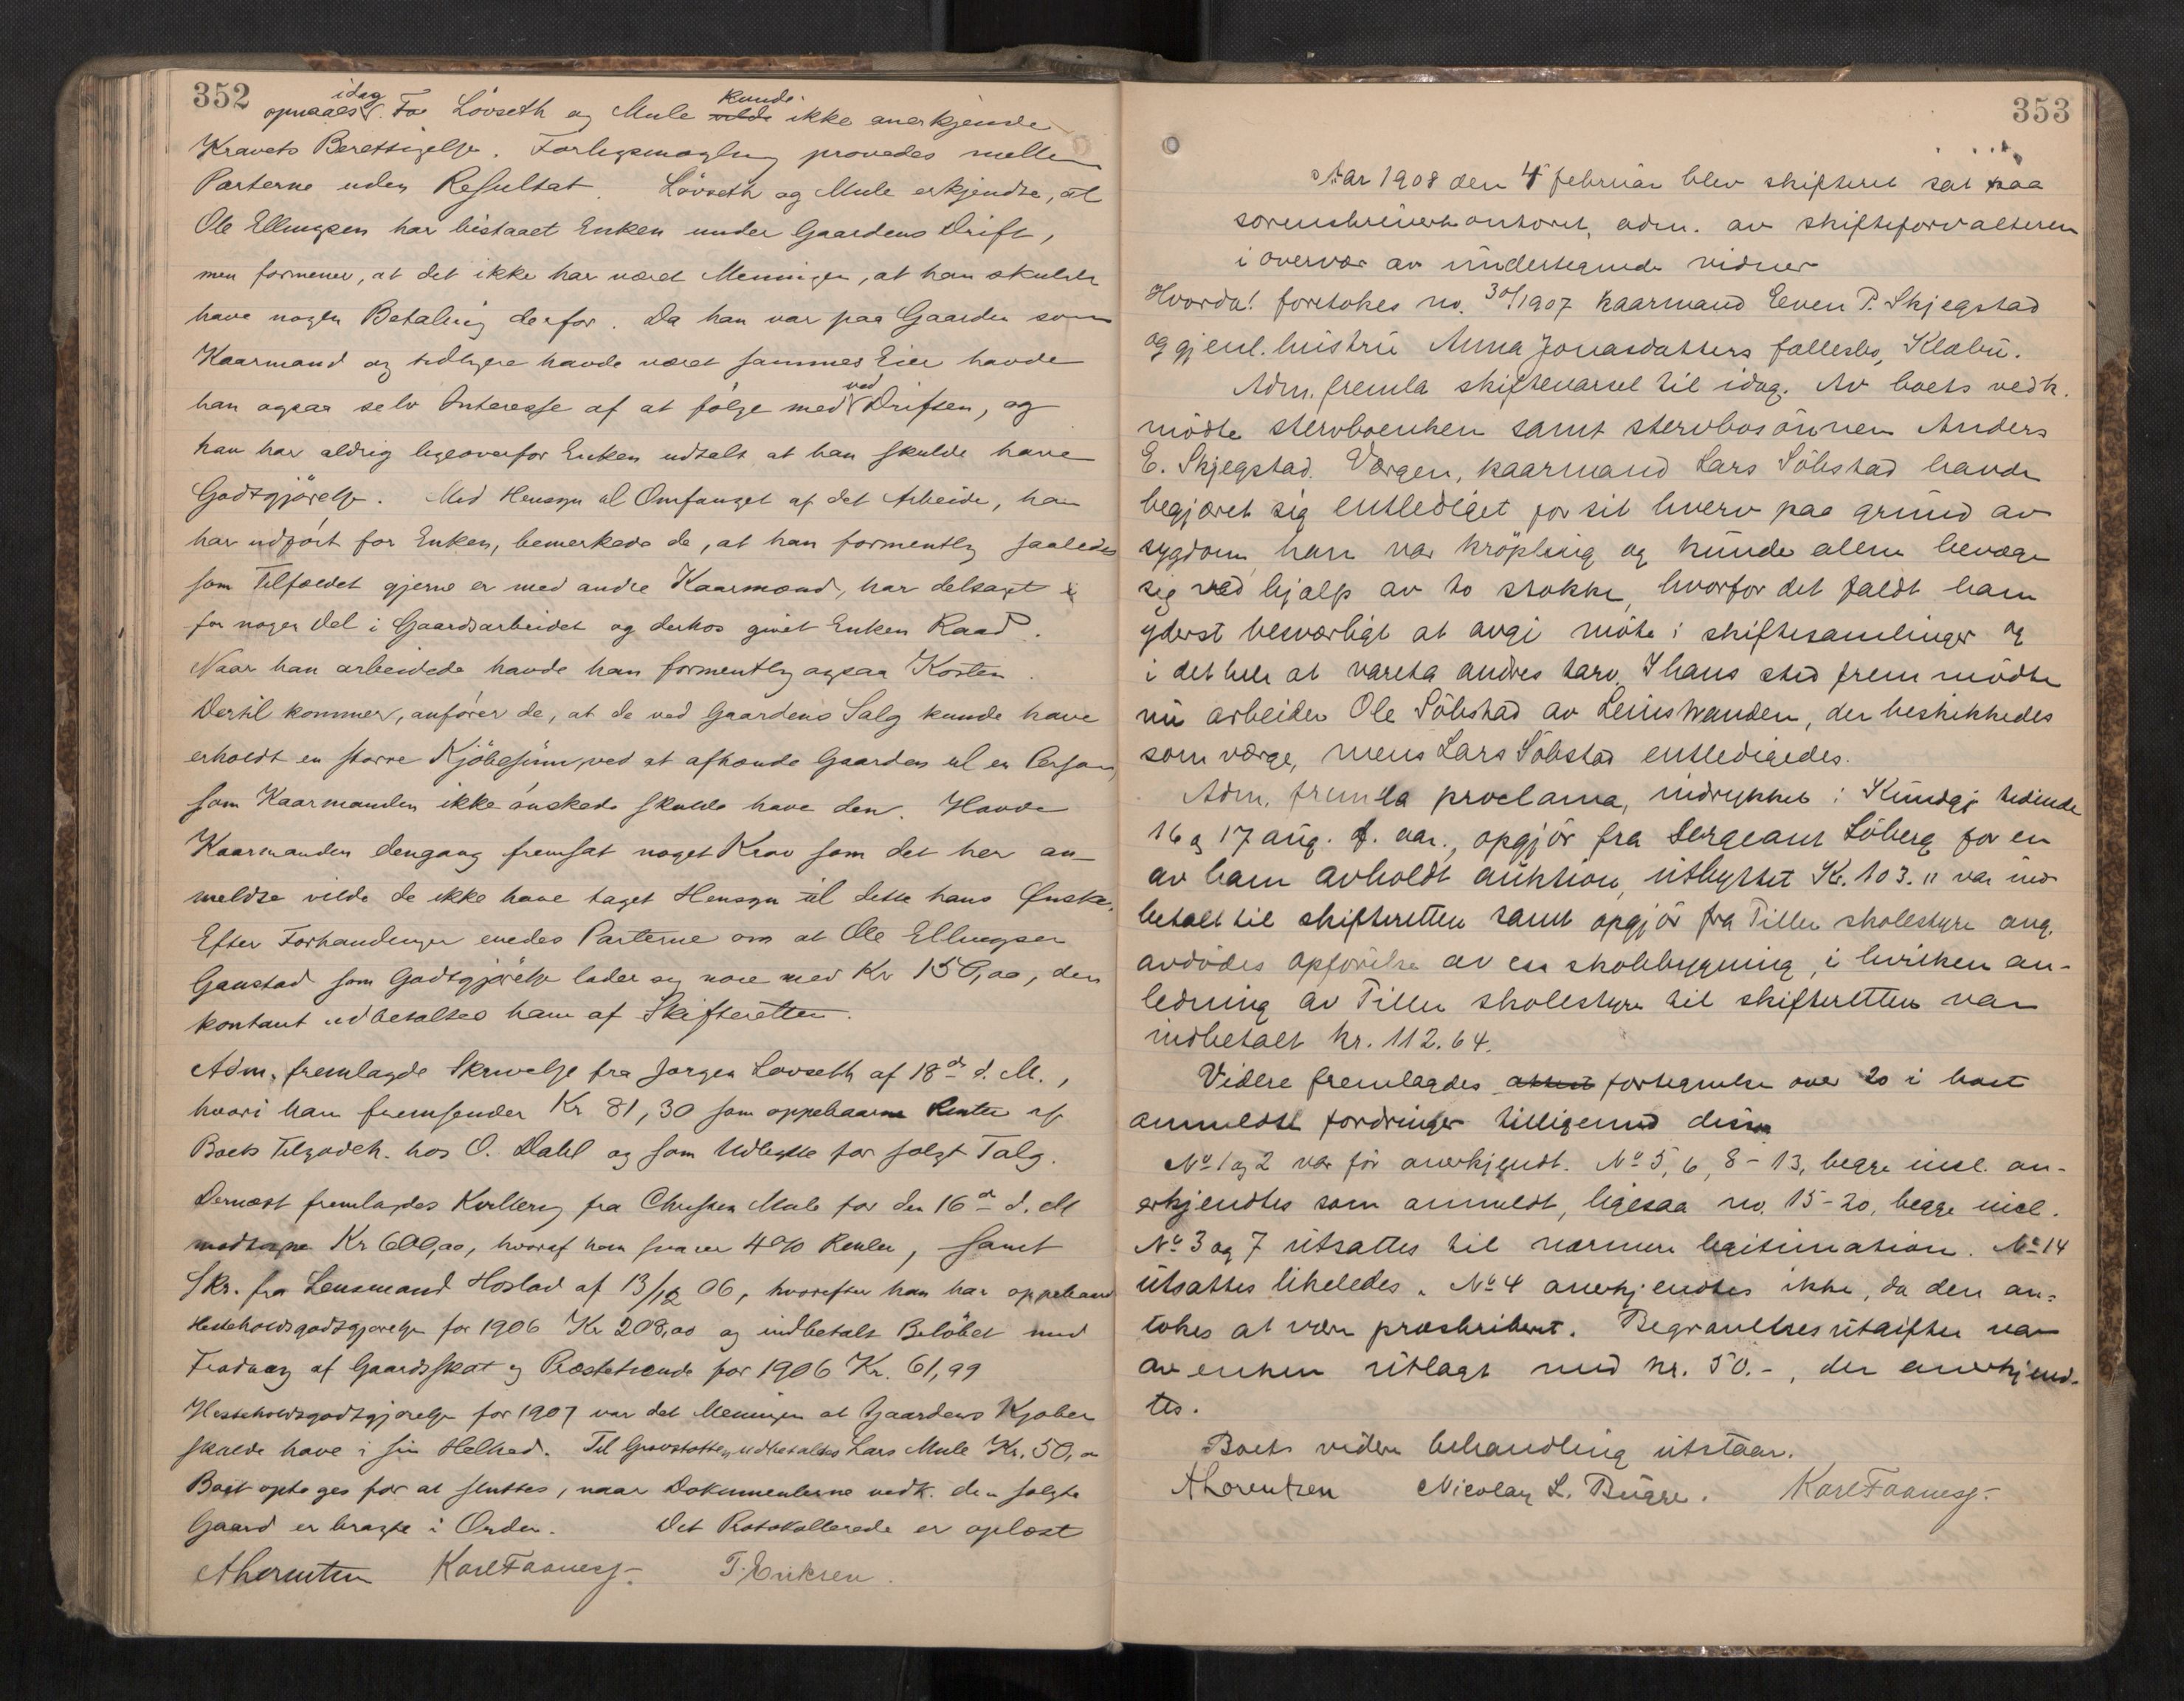 352
idag
opnaaes. Lövseth og Mule kunde ikke anerkjende
Kravets Berettigelse. Forligsmægling prövedes mellem
Parterne uden Resultat. Lövseth og Mule erkjendte, at
Ole Ellingsen har bistaaet Enken under Gaardens Drift,
men formener, at det ikke har været Meningen, at han skulde
have nogen Betaling derfor. Da han var paa Gaarden som
Kaarmand og tidligere havde været sammes Eier havde
han ogsaa selv Interesse af at følge med ved Driften, og
han har aldrig ligeoverfor Enken udtalt at han skulde have
Godtgjörelse. Med Hensyn til Omfanget af det Arbeide, han
har udfört for Enken, bemerkede de, at han formentlig saaledes
som Tilfældet gjerne er med andre Kaarmænd, har deltaget
for nogen Del i Gaardsarbeidet og derhos givet Enken Raad.
Naar han arbeidede havde han formentlig ogsaa Kosten.
Dertil kommer, anförer de, at de ved Gaardens Salg kunde have
erholdt en større Kjöbesum, ved at afhænde Gaarden til en Person,
som Kaarmanden ikke önskede skulde have den. Havde
Kaarmanden dengang fremsat noget Krav som det her an-
meldte vilde de ikke have taget Hensyn til dette hans Ønske.
Efter Forhandlinger enedes Parterne om at Ole Ellingsen
Ganstad som Godtgjörelse lader sig nøie med Kr 150,00, der
kontant udbetaltes ham af Skifteretten.
Adm. fremlagde Skrivelse fra Jørgen Lovseth af 18de d. M.,
hvori han fremsender Kr 81,30 som oppebaarne Renter af
Boets Tilgodeh. hos O. Dahl og som Udbytte for solgt Talg.
Dernæst fremlagdes Kvittering fra Christen Mule for den 16de d. M
modtagne Kr 600,00, hvoraf han svarer 4% Renter, samt
Skr. fra Lensmand Hostad af 13/12 06, hvorefter han har oppebaaret
Hesteholdsgodtgjørelse for 1906 Kr 208,00 og indbetalt Belöbet med
Fradrag af Gaardsskat og Præstetiende for 1906 Kr. 61,99
Hesteholdsgodtgjørelse for 1907 var det Meningen at Gaardens Kjøber
skulde have i sin Helhed. Til Gravstøtte udbetaltes Lars Mule Kr. 50,00
Boet optoges for at sluttes, naar Dokumenterne vedk. den solgte
Gaard er bragte i Orden. Det Protokollerede er oplæst
AThorentsen Karl Faanes J. T. Eriksen.
353
Aar 1908 den 4 februar blev skifteret sat paa
sorenskriverkontoret, adm. av skifteforvalteren
i overvær av undertegnede vidner
Hvorda! foretokes no. 30/1907 kaarmand Even P. Skjegstad
og gjenl. hustru Anna Jonasdatters fællesbo, Klæbu.
Adm. fremla skiftevarsel til idag. Av boets vedk.
mödte stervboenken samt stervbosönnen Anders
E. Skjegstad. Værgen, kaarmand Lars Söbstad havde
begjæret sig entlediget for sit hverv paa grund av
sygdom, han var kröpling og kunde alene bevæge
sig ved hjælp av to stokke, hvorfor det faldt ham
yderst besværligt at avgi möte i skiftesamlinger og
i det hele at vareta andres tarv. I hans sted fremmödte
nu arbeider Ole Söbstad av Leinstranden, der beskikkedes
som værge, mens Lars Söbstad entledigedes.
Adm. fremla proclama, indrykket i Kundgj tidende
16 og 17 aug. f. aar., opgjör fra Sergeant Löberg for en
av ham avholdt auktion, utbyttet Kr. 103." var ind
betalt til skifteretten samt opgjör fra Tiller skolestyre ang.
avdödes opförelse av en skolebygning, i hvilken an-
ledning av Tiller skolestyre til skifteretten var
indbetalt kr. 112.64.
Videre fremlagdes fortegnelse over 20 i boet
anmeldte fordringer tilligemed disse
No 1 og 2 var för anerkjendt. No 5, 6, 8-13, begge incl. an-
erkjendtes som anmeldt, ligesaa no. 15-20, begge incl.
No 3 og 7 utsattes til nærmere legitimation. No 14
utsattes likeledes. No 4 anerkjendtes ikke, da den an-
tokes at være præskribert. Begravelsesutgifter var
av enken utlagt med kr. 50.-, der anerkjend-
tes.
Boets videre behandling utstaar.
AThorentsen Nicolay L. Bugge. Karl Faanes J.